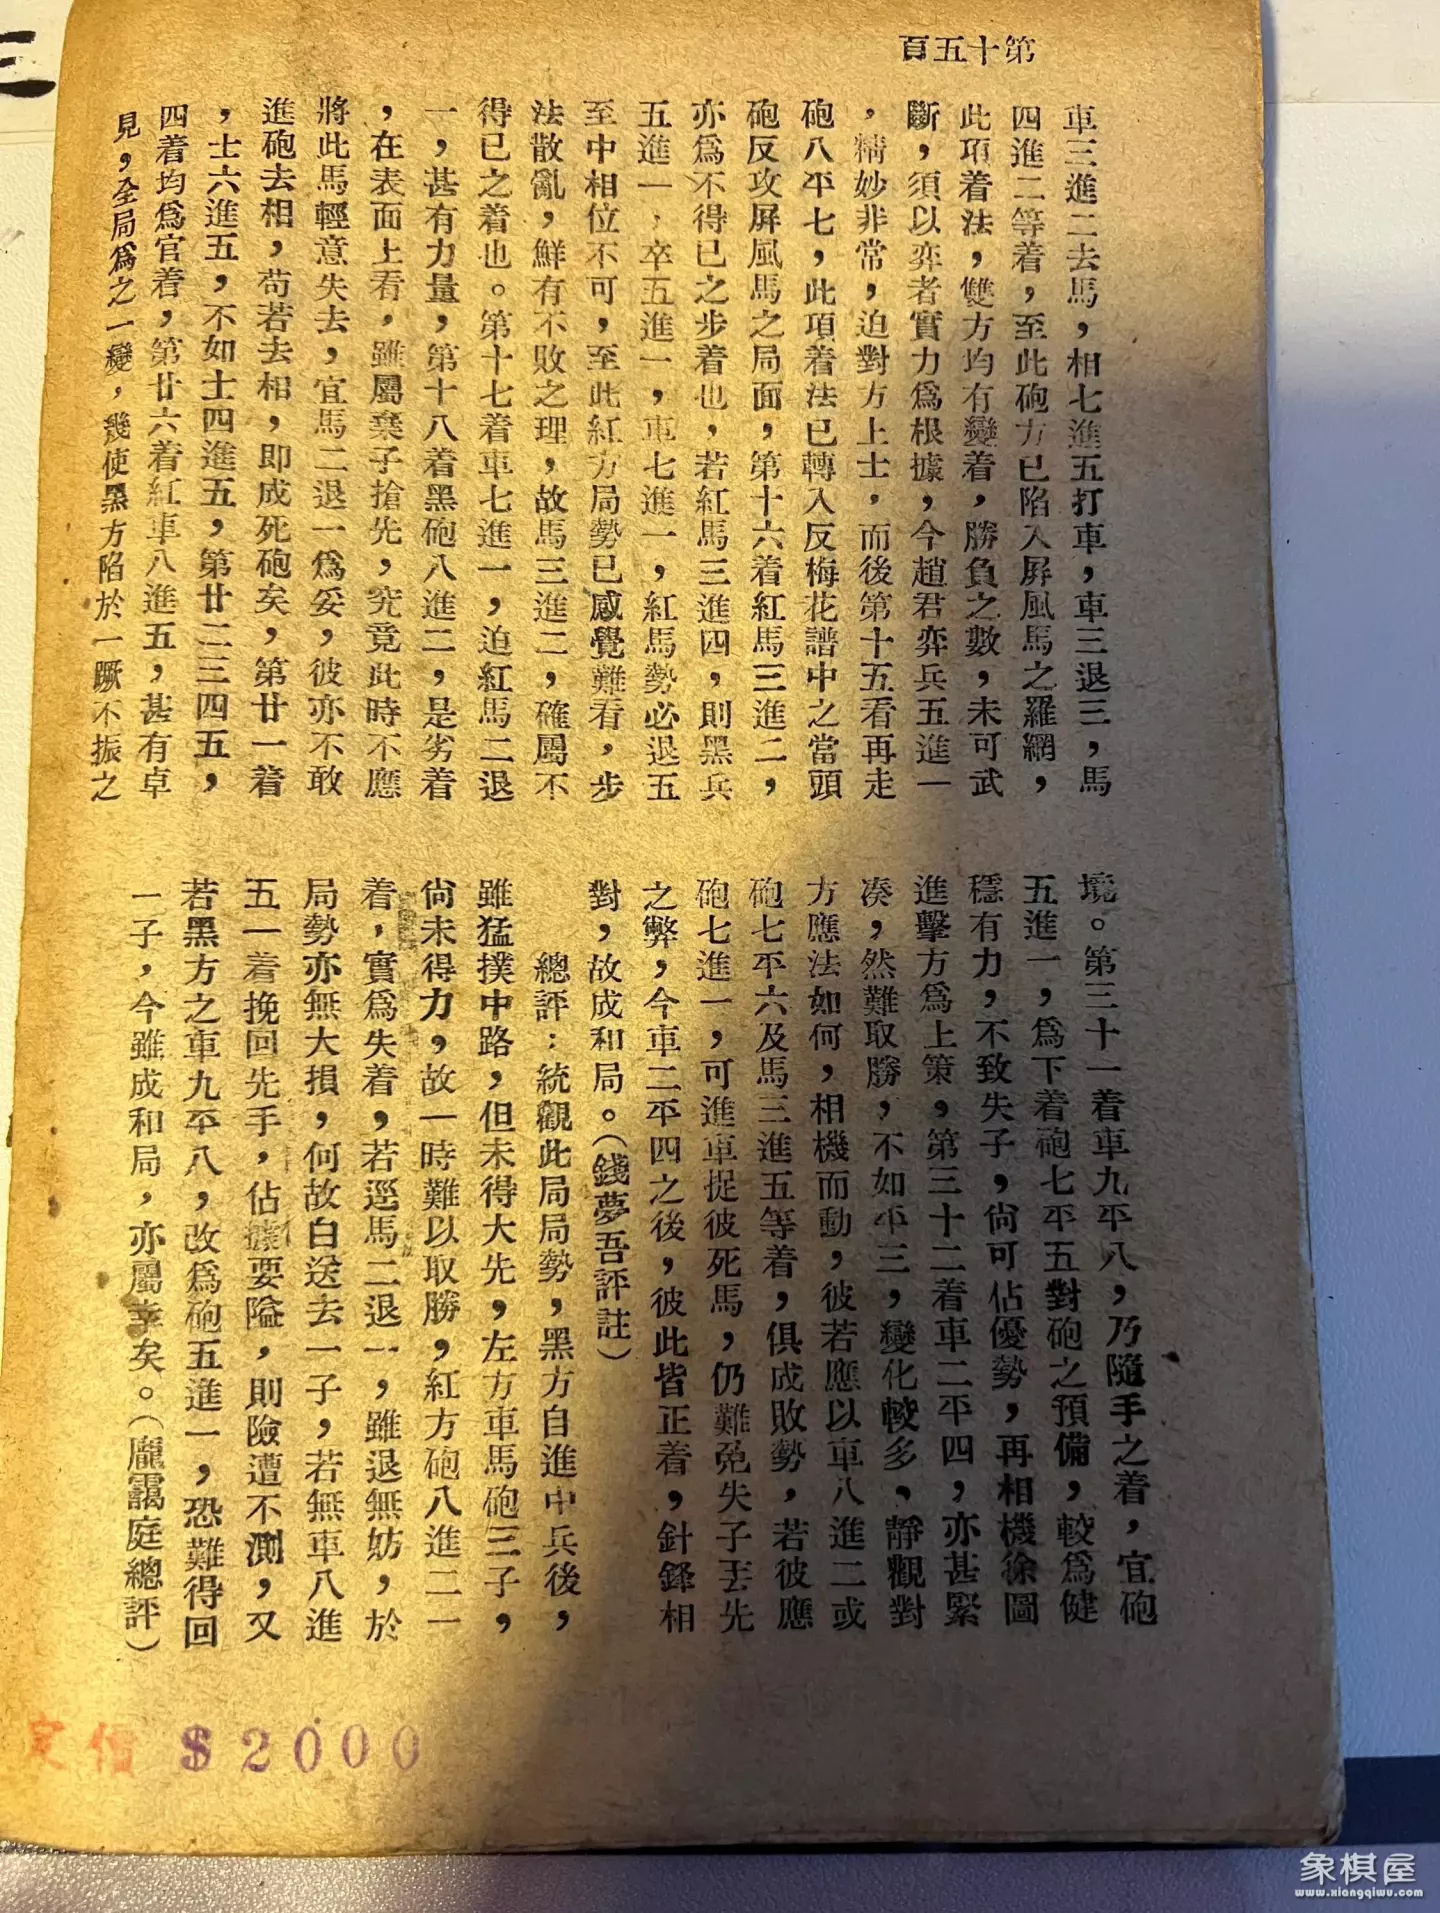 第十五百
車三進二去馬，相七進五打車，車三退三，馬
四進二等着，至此砲方已陷入屏風馬之羅網，
此項着法，雙方均有變着，勝負之數，未可武
斷，須以弈者實力爲根據，今趙君弈兵五進一
，精妙非常，迫對方上士，而後第十五看再走
砲八平七，此項着法已轉入反梅花譜中之當頭
砲反攻屏風馬之局面，第十六着紅馬三進二，
亦爲不得已之步着也，若紅馬三進四，則黑兵
五進一，卒五進一，車七進一，紅馬勢必退五
至中相位不可，至此紅方局勢已感覺難看，步
法散亂，鮮有不敗之理，故馬三進二，確屬不
得已之着也。第十七着車七進一，迫紅馬二退
一，甚有力量，第十八着黑砲八進二，是劣着
，在表面上看，雖屬棄子搶先，究竟此時不應
將此馬輕意失去，宜馬二退一爲妥，彼亦不敢
進砲去相，苟若去相，即成死砲矣，第廿一着
，士六進五，不如士四進五，第廿二三四五，
四着均爲官着，第廿六着紅車八進五，甚有卓
見，全局爲之一變，幾使黑方陷於一蹶不振之
境。第三十一着車九平八，乃隨手之着，宜砲
五進一，爲下着砲七平五對砲之預備，較爲健
穩有力，不致失子，尙可佔優勢，再相機徐圖
進擊方爲上策，第三十二着車二平四，亦甚緊
凑，然難取勝，不如平三，變化較多，靜觀對
方應法如何，相機而動，彼若應以車八進二或
砲七平六及馬三進五等着，俱成敗勢，若彼應
砲七進一，可進車捉彼死馬，仍難免失子丟先
之弊，今車二平四之後，彼此皆正着，針鋒相
對，故成和局。（錢夢吾評註）
總評：統觀此局局勢，黑方自進中兵後，
雖猛撲中路，但未得大先，左方車馬砲三子，
尙未得力，故一時難以取勝，紅方砲八進二一
着，實爲失着，若逕馬二退一，雖退無妨，於
局勢亦無大損，何故白送去一子，若無車八進
五一着挽回先手，佔據要隘，則險遭不測，又
若黑方之車九平八，改爲砲五進一，恐難得回
一子，今雖成和局，亦屬幸矣。（龐靄庭總評）
定價 $2000
象棋屋
www.xiangqiwu.com